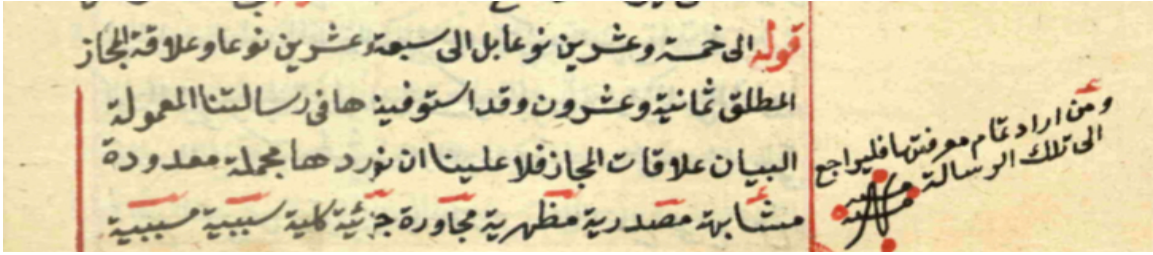 قوله الى خمسة وعشرين نوعا بل الى سبعة وعشرين نوعا وعلاقة المجاز
المطلق ثمانية وعشرون وقد استوفينها فى رسالتنا المعمولة
البيان علاقات المجاز فلا علينا ان نورد ها مجملة معدودة
مشابهة مصدرية مظهرية مجاورة جزئية كلية سببية مسببية
ومن اراد تمام معرفتها فليراجع
الى تلك الرسالة